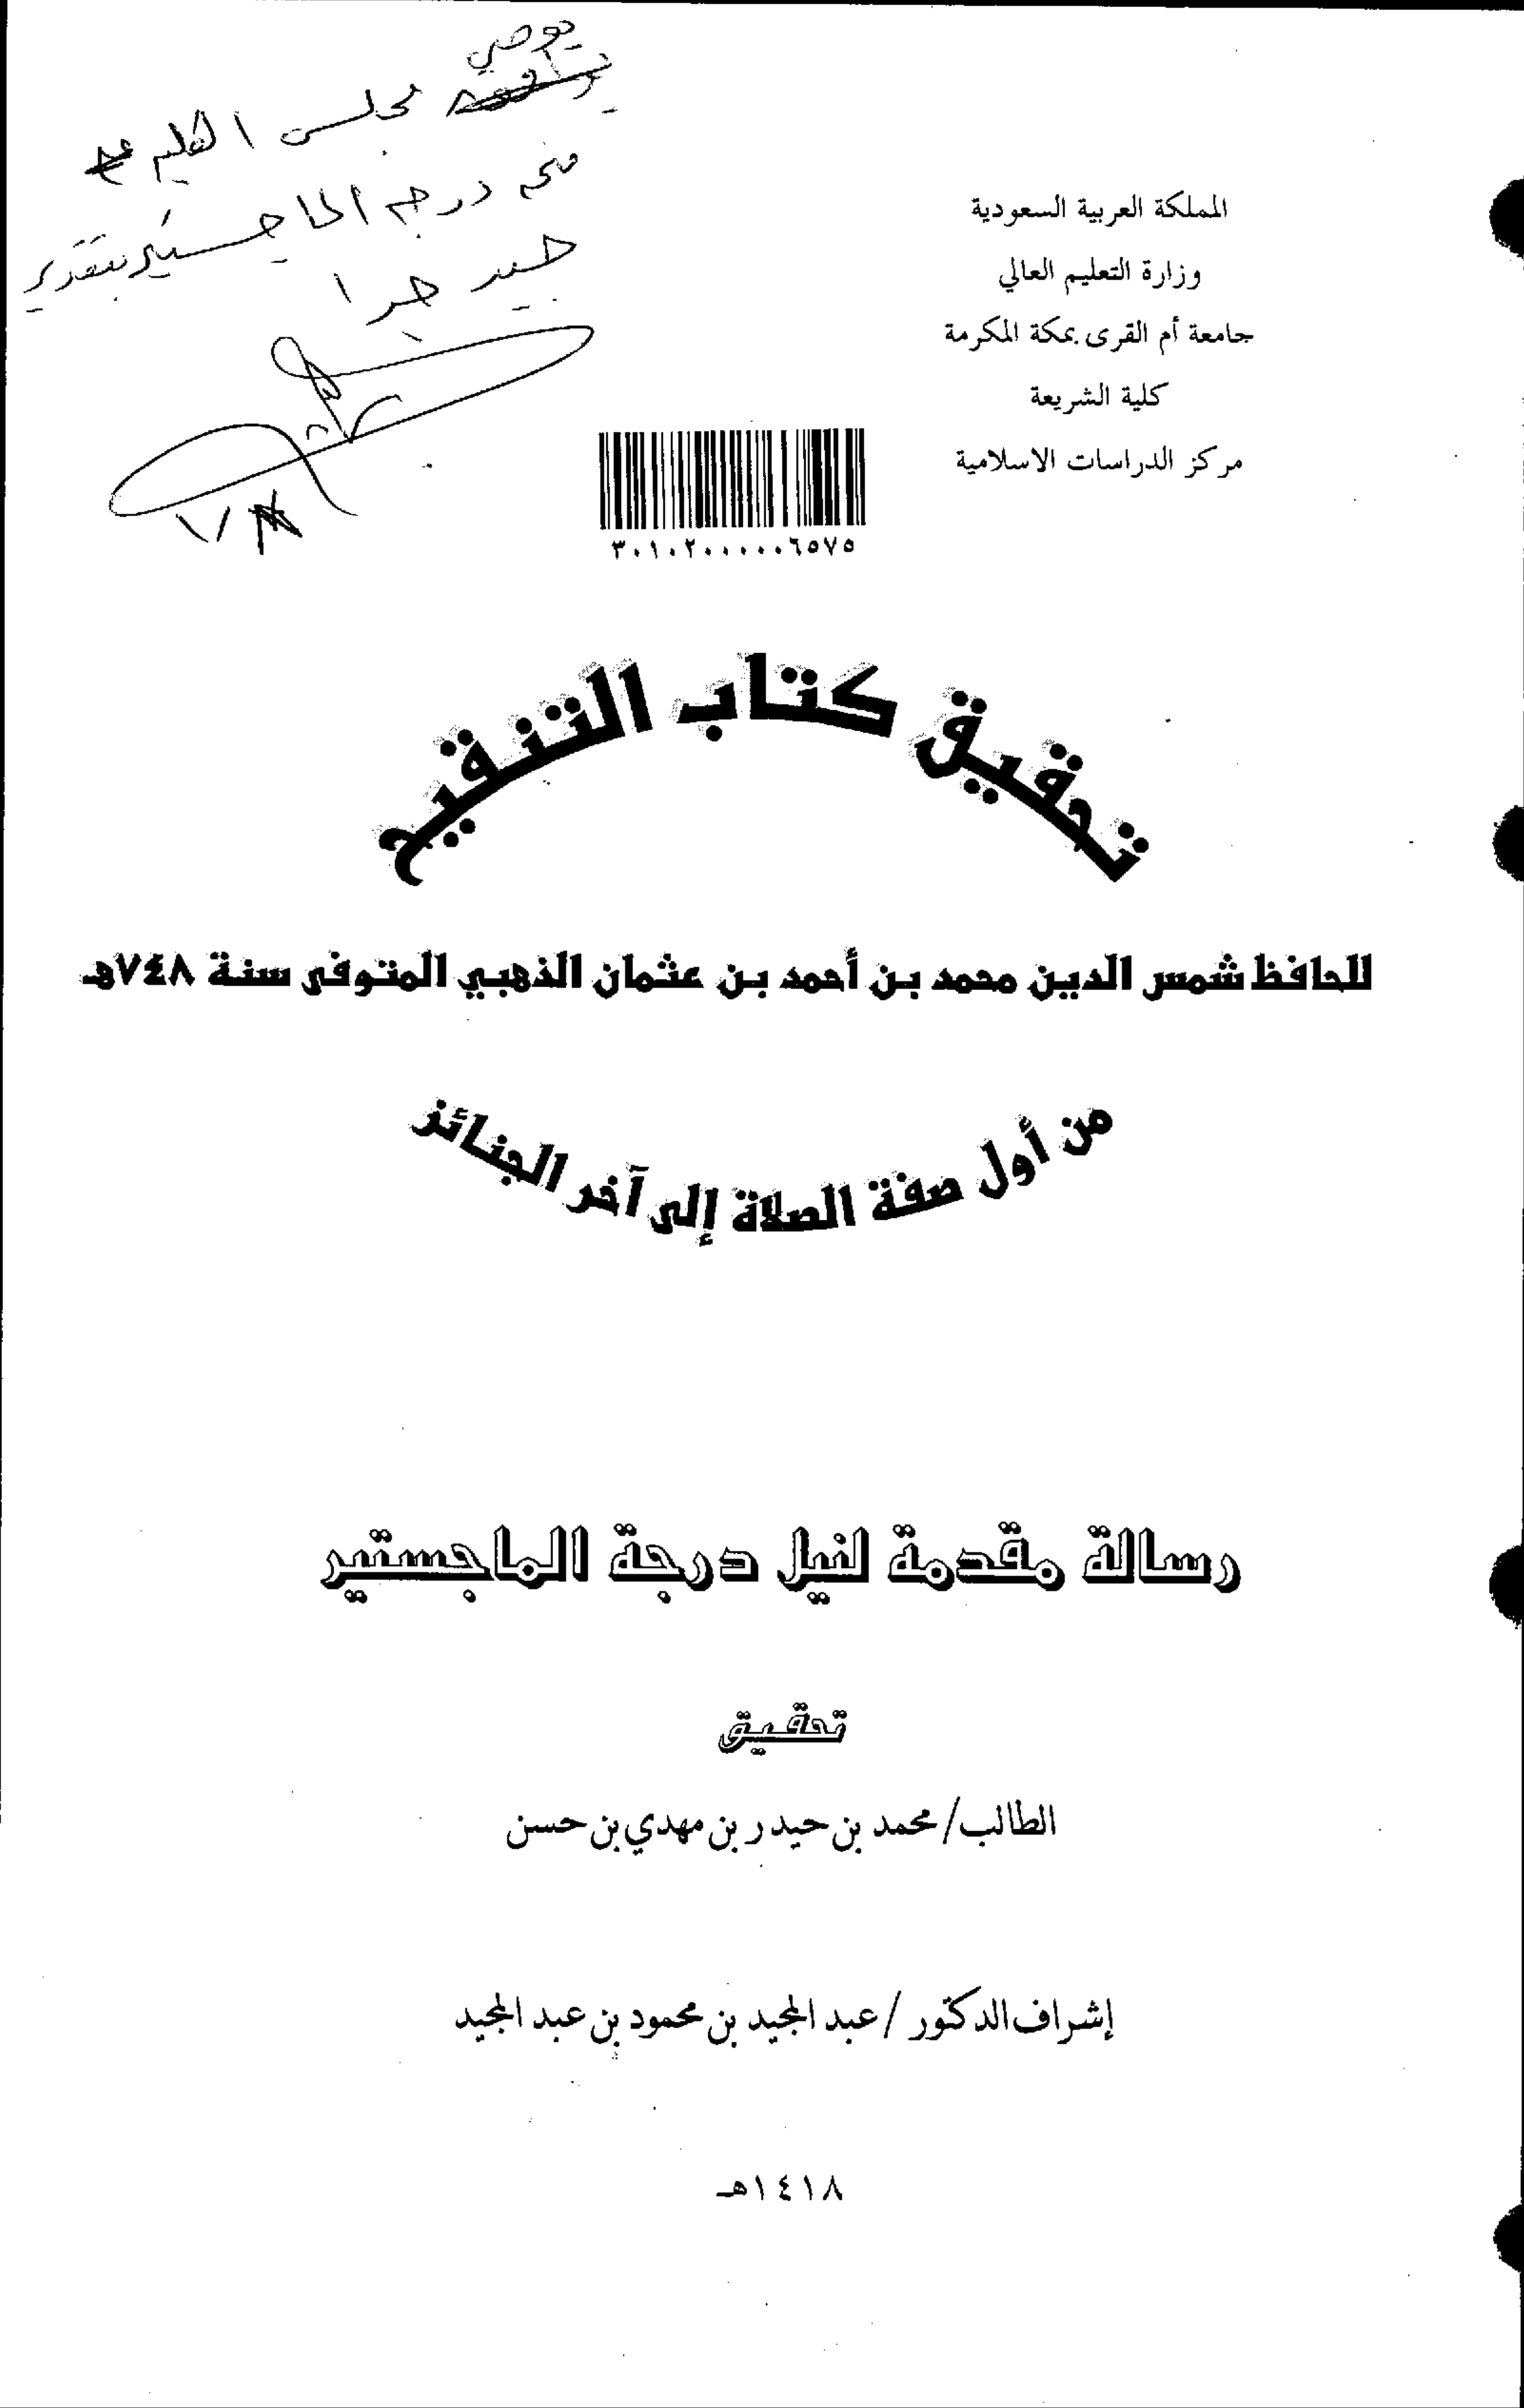 يوصي
مجلس الكلية
منح درجة الماجستير بتقدير
جيد جدا
المملكة العربية السعودية
وزارة التعليم العالي
جامعة أم القرى بمكة المكرمة
كلية الشريعة
مركز الدراسات الاسلامية
٣٠١٠٢٠٠٠٠٠٦٥٧٥
تحقيق كتاب التنقيح
للحافظ شمس الدين محمد بن أحمد بن عثمان الذهبي المتوفى سنة ٧٤٨هـ
من أول صفة الصلاة إلى آخر الجنائز
رسالة مقدمة لنيل درجة الماجستير
تحقيق
الطالب/ محمد بن حيدر بن مهدي بن حسن
إشراف الدكتور / عبد المجيد بن محمود بن عبد المجيد
١٤١٨هـ